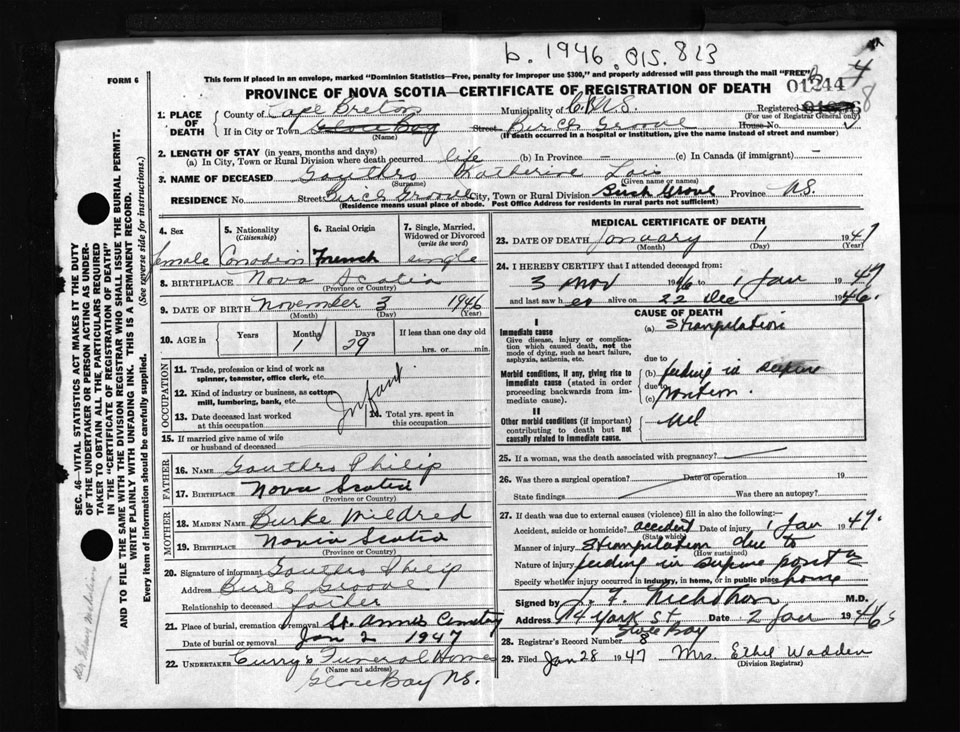 b. 1946. 015. 813
FORM 6
This form if placed in an envelope, marked "Dominion Statistics—Free, penalty for improper use $300," and properly addressed will pass through the mail "FREE"
PROVINCE OF NOVA SCOTIA—CERTIFICATE OF REGISTRATION OF DEATH
01244
1. PLACE OF DEATH
County of Cape Breton Municipality of C.B. N.S. Registered
(For use of Registrar General only)
If in City or Town Glace Bay Street Birch Groove House No.
(Name) (If death occurred in a hospital or institution, give the name instead of street and number)
2. LENGTH OF STAY (in years, months and days)
(a) In City, Town or Rural Division where death occurred life (b) In Province – (c) In Canada (if immigrant) –
3. NAME OF DECEASED Gouthro Katherine Lois
(Surname) (Given name or names)
RESIDENCE No. Street Birch Groove City, Town or Rural Division Birch Grove Province N.S.
(Residence means usual place of abode. Post Office Address for residents in rural parts not sufficient)
4. Sex
female
5. Nationality
(Citizenship)
Canadian
6. Racial Origin
French
7. Single, Married, Widowed or Divorced
(write the word)
single
8. BIRTHPLACE Nova Scotia
(Province or Country)
9. DATE OF BIRTH November 3 1946
(Month) (Day) (Year)
10. AGE in Years Months 1 Days 29 If less than one day old
hrs. or min.
OCCUPATION
11. Trade, profession or kind of work as
spinner, teamster, office clerk, etc.
12. Kind of industry or business, as cotton-
mill, lumbering, bank, etc.
Infant
13. Date deceased last worked
at this occupation
14. Total yrs. spent in
this occupation
15. If married give name of wife
or husband of deceased
FATHER
16. NAME Gouthro Philip
17. BIRTHPLACE Nova Scotia
(Province or Country)
MOTHER
18. MAIDEN NAME Burke Mildred
19. BIRTHPLACE Novia Scotia
(Province or Country)
20. Signature of informant Gouthro Philip
Address Birch Groove
Relationship to deceased father
21. Place of burial, cremation or removal St. Annes Cemetery
Date of burial or removal Jan 2 1947
22. UNDERTAKER Curry's Funeral Home
(Name and address)
Glace Bay N.S.
MEDICAL CERTIFICATE OF DEATH
23. DATE OF DEATH January 1 1947
(Month) (Day) (Year)
24. I HEREBY CERTIFY that I attended deceased from:
3 Nov 1946 to 1 Jan 1947
and last saw her alive on 22 Dec 1946.
CAUSE OF DEATH
I
Immediate cause
Give disease, injury or complication which caused death, not the mode of dying, such as heart failure, asphyxia, asthenia, etc.
(a) Strangulation
due to
Morbid conditions, if any, giving rise to immediate cause (stated in order proceeding backwards from immediate cause).
(b) feeding in supine
due to
(c) position.
II
Other morbid conditions (if important) contributing to death but not causally related to immediate cause.
Nil
25. If a woman, was the death associated with pregnancy?
26. Was there a surgical operation? Date of operation 19
State findings Was there an autopsy?
27. If death was due to external causes (violence) fill in also the following:—
Accident, suicide or homicide? accident Date of injury 1 Jan 1947.
(State which)
Manner of injury Strangulation due to
(How sustained)
Nature of injury feeding in supine position
Specify whether injury occurred in industry, in home, or in public place home
Signed by M.D.
Address York St Date 2 Jan 1946
Glace Bay
28. Registrar's Record Number 8
29. Filed Jan 28 1947 Mrs. Ethel Wadden
(Division Registrar)
SEC. 46—VITAL STATISTICS ACT MAKES IT THE DUTY
OF THE UNDERTAKER OR PERSON ACTING AS UNDER-
TAKER TO OBTAIN ALL THE PARTICULARS REQUIRED
IN THE "CERTIFICATE OF REGISTRATION OF DEATH"
AND TO FILE THE SAME WITH THE DIVISION REGISTRAR WHO SHALL ISSUE THE BURIAL PERMIT.
WRITE PLAINLY WITH UNFADING INK. THIS IS A PERMANENT RECORD.
Every item of information should be carefully supplied. (See reverse side for instructions.)